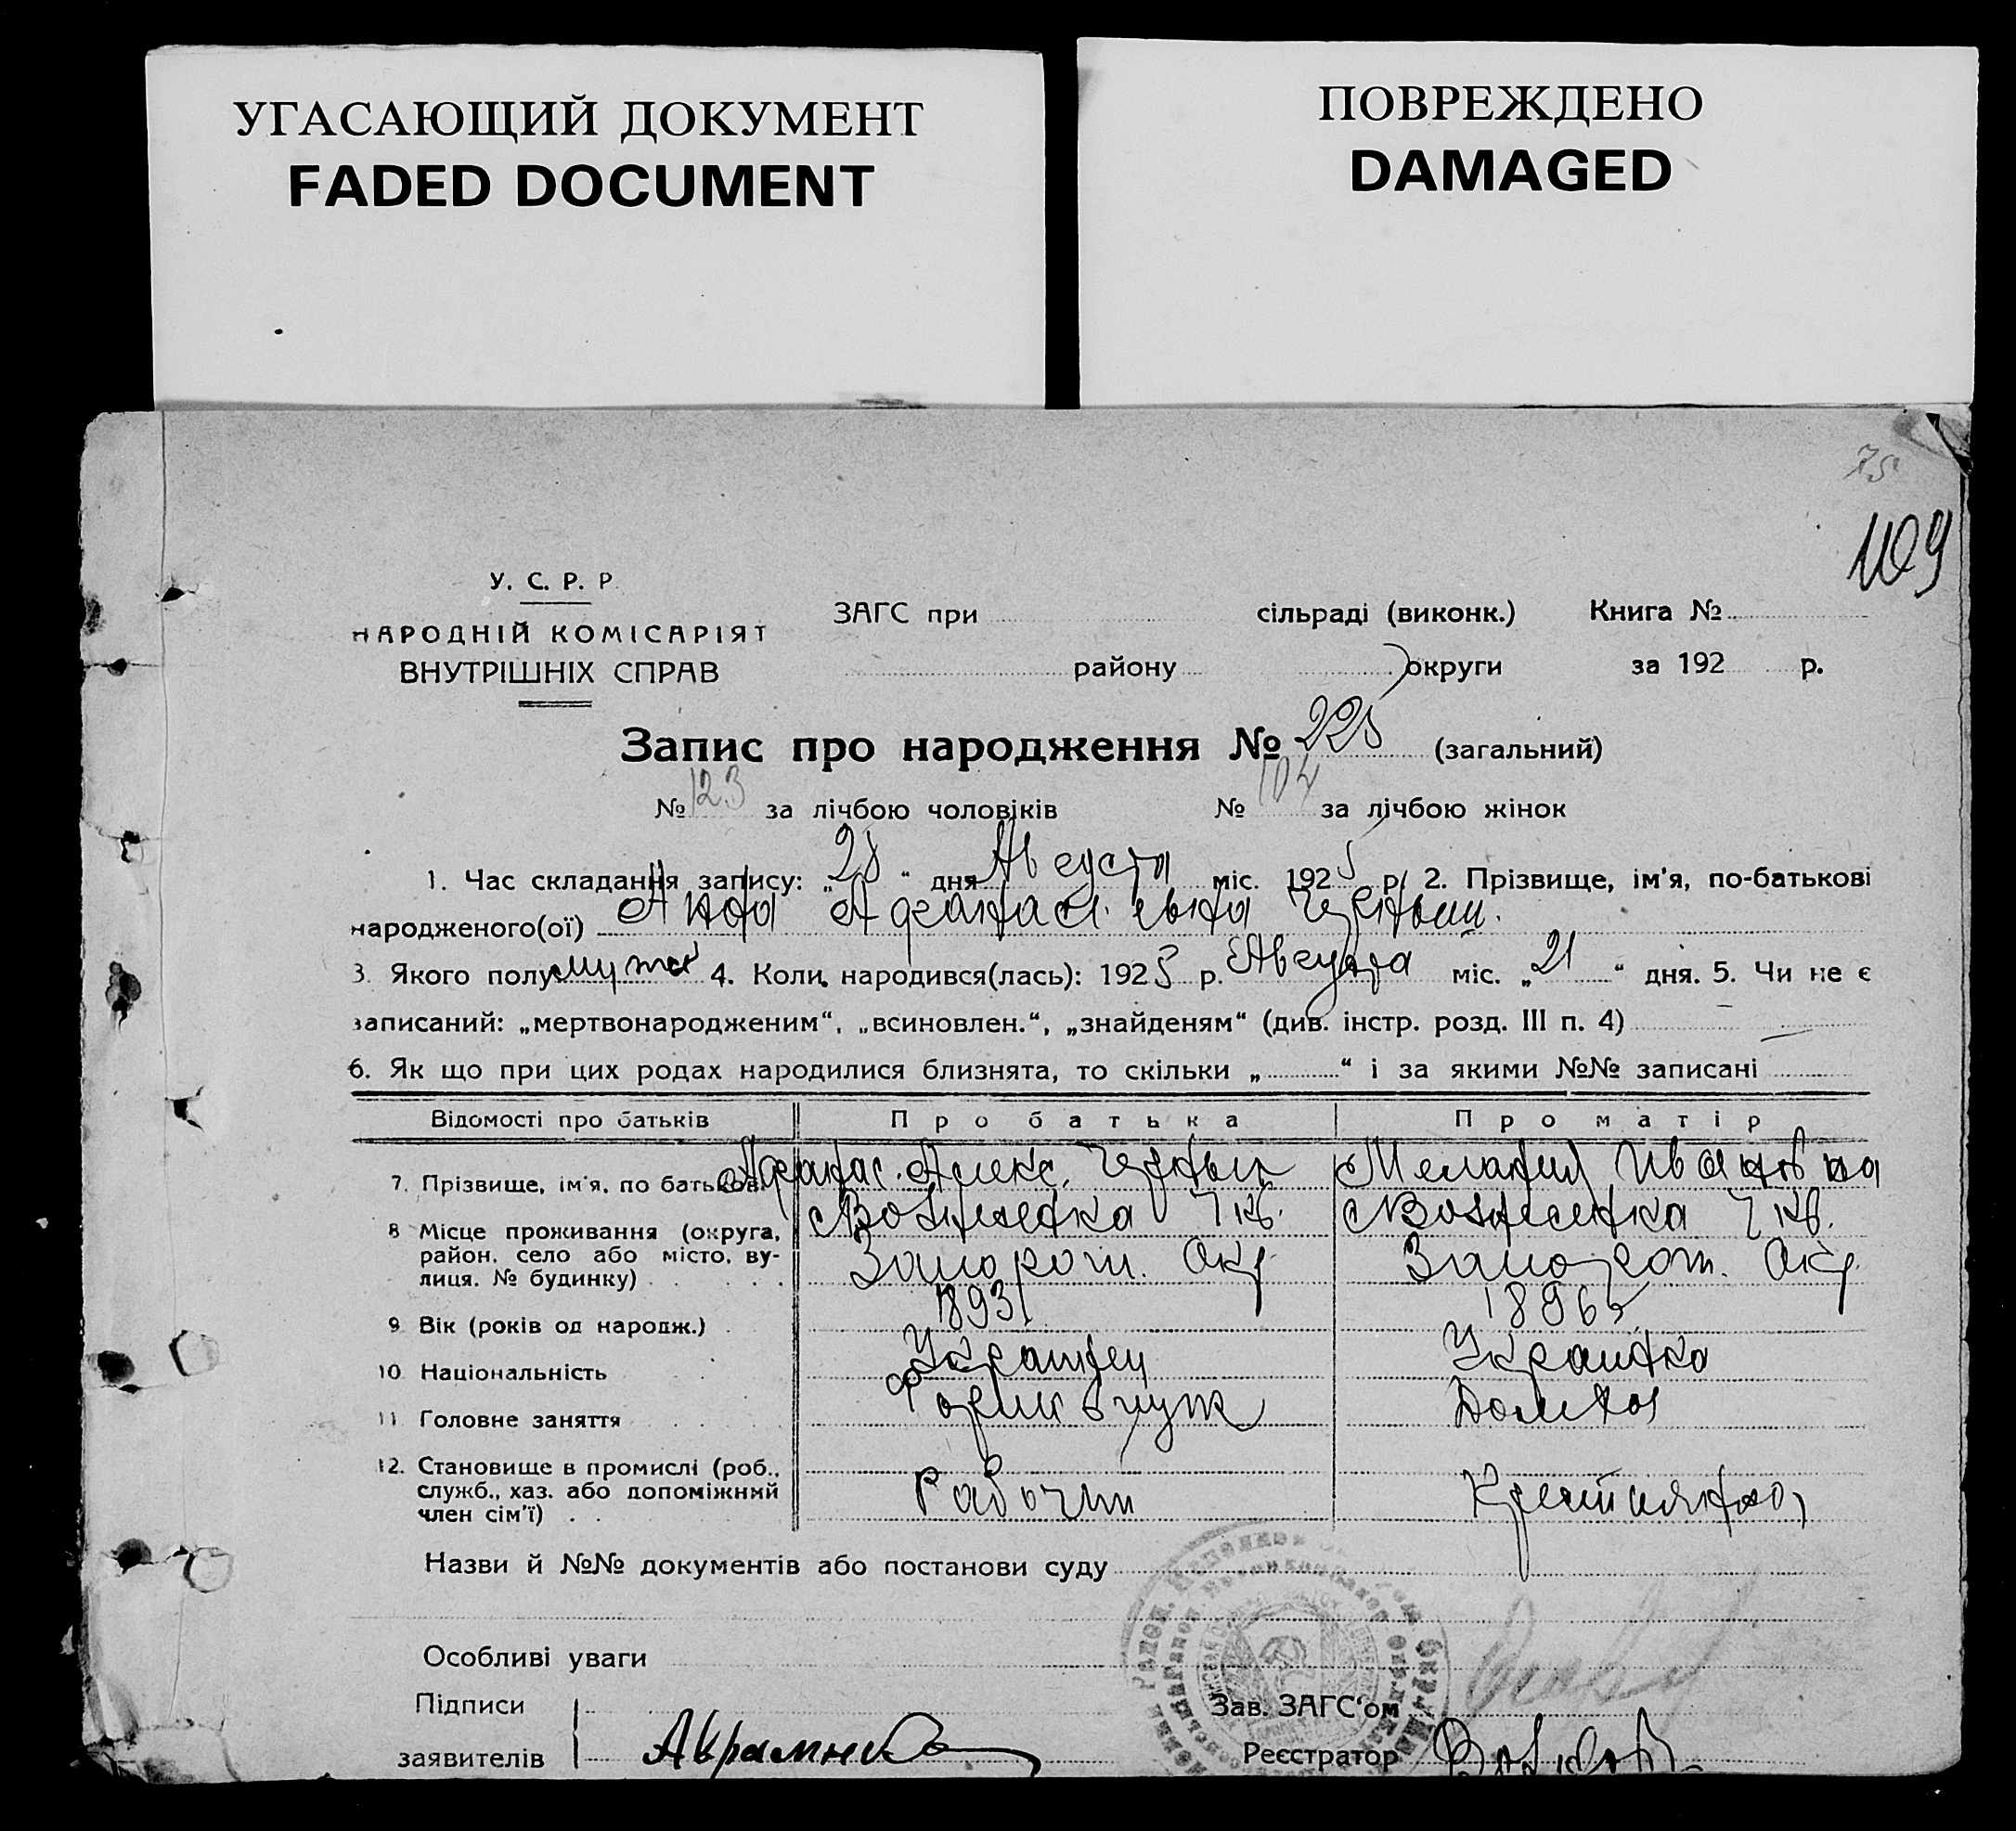 УГАСАЮЩИЙ ДОКУМЕНТ
FADED DOCUMENT
ПОВРЕЖДЕНО
DAMAGED
75
109
У. С. Р. Р.
НАРОДНІЙ КОМІСАРІЯТ
ВНУТРІШНІХ СПРАВ
ЗАГС при сільраді (виконк.) Книга №
району округи за 192 р.
Запис про народження № 225 (загальний)
№ 123 за лічбою чоловіків № 104 за лічбою жінок
1. Час складання запису: „28“ дня Августа міс. 1925 р. 2. Прізвище, ім'я, по-батькові
народженого(ої) Анна Афанасьевна Черныш.
3. Якого полу 4. Коли народився(лась): 1925 р. Августа міс. „21“ дня. 5. Чи не є
записаний: „мертвонародженим“, „всиновлен.“, „знайденям“ (див. інстр. розд. III п. 4)
6. Як що при цих родах народилися близнята, то скільки „ “ і за якими №№ записані
Відомості про батьків Про батька Про матір
7. Прізвище, ім'я, по батькові Афанас. Алекс. Черныш Мелания Ивановна
8 Місце проживання (округа, район, село або місто, вулиця, № будинку) Вознесенка 7 кв. Запорож. Окр. Вознесенка 7 кв. Запорож. Окр.
9 Вік (років од народж.) 1893 1896
10 Національність Украинец Украинка
11 Головне заняття Домхоз
12. Становище в промислі (роб., служб., хаз. або допоміжний член сім'ї) Рабочий Крестьянка
Назви й №№ документів або постанови суду
Особливі уваги
Підписи
заявителів
Зав. ЗАГС'ом
Реєстратор